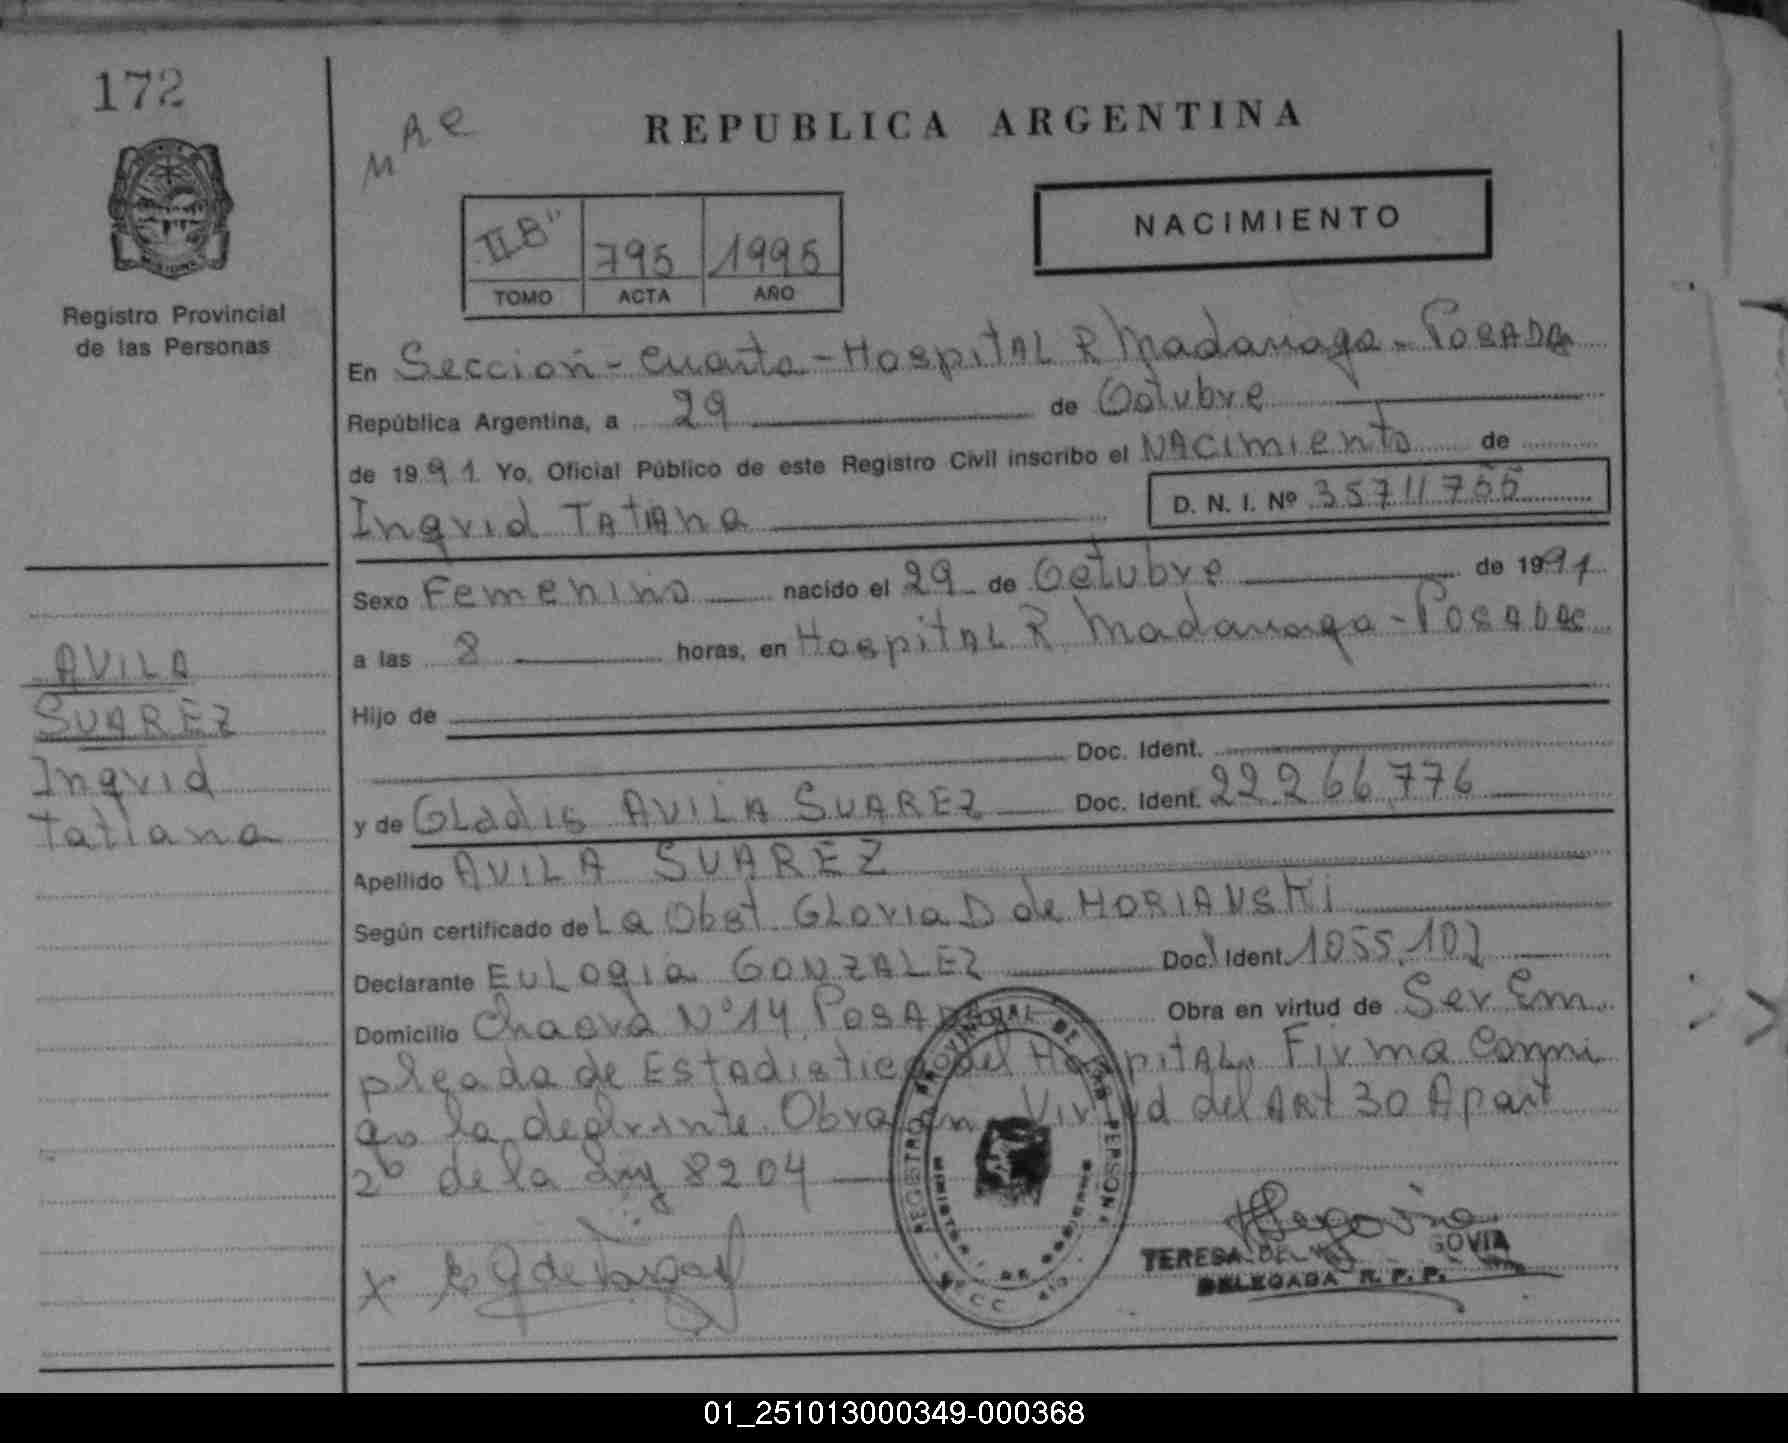 172
REPUBLICA ARGENTINA
NACIMIENTO
II B"
795
1995
TOMO
ACTA
AÑO
Registro Provincial
de las Personas
En Sección - Cuarta - Hospital R Madariaga - Posadas
República Argentina, a 29 de Octubre
de 1991. Yo, Oficial Público de este Registro Civil inscribo el Nacimiento de
Ingrid Tatiana
D. N. I. Nº 35711755
Sexo Femenino nacido el 29 de Octubre de 1991
a las 8 horas, en Hospital R Madariaga - Posadas
Hijo de
Doc. Ident.
y de Gladis AVILA SUAREZ Doc. Ident. 22.266.776
Apellido AVILA SUAREZ
Según certificado de La Obst. Gloria D de MORIAUSKI
Declarante EULOGIA GONZALEZ Doc. Ident. 1055.102
Domicilio Chacra Nº 14 Posadas Obra en virtud de Ser Em
pleada de Estadistica del Hospital. Firma Conmi
go la Obra en Virtud del Art 30 Apart
2º de la Ley 8204
AVILA
SUAREZ
Ingrid
Tatiana
REGISTRO PROVINCIAL DE LAS PERSONAS
TERESA DEL GOVIA
DELEGADA R. P. P.
01_251013000349-000368